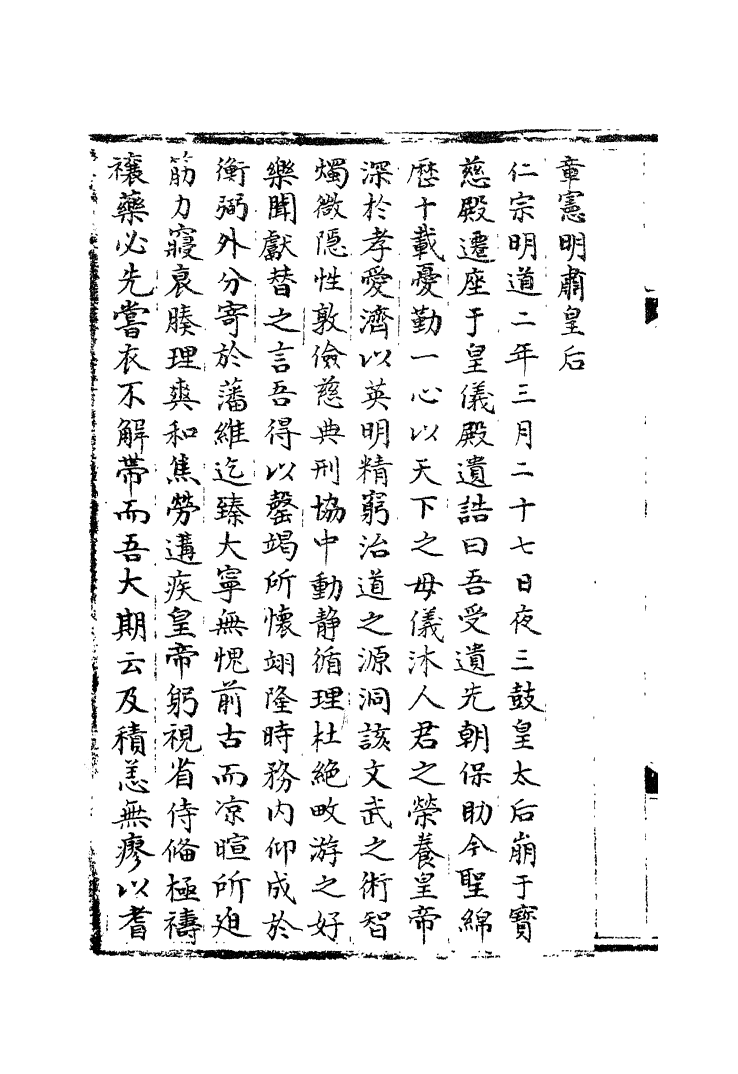 章憲明肅皇后
仁宗明道二年三月二十七日夜三鼓皇太后崩于寶
慈殿遷座于皇儀殿遺誥曰吾受遺先朝保助今聖綿
歷十載憂勤一心以天下之母儀沐人君之榮養皇帝
深於孝愛濟以英明精窮治道之源洞該文武之術智
燭微隱性敦儉慈典刑協中動靜循理杜絶畋游之好
樂聞獻替之言吾得以罄竭所懷翊隆時務内仰成於
衡弼外分寄於藩維迄臻大寧無愧前古而凉暄所迫
筋力寖衰腠理爽和焦勞遘疾皇帝躬視省侍俻極禱
禳藥必先嘗衣不解帶而吾大期云及積恙無瘳以耆